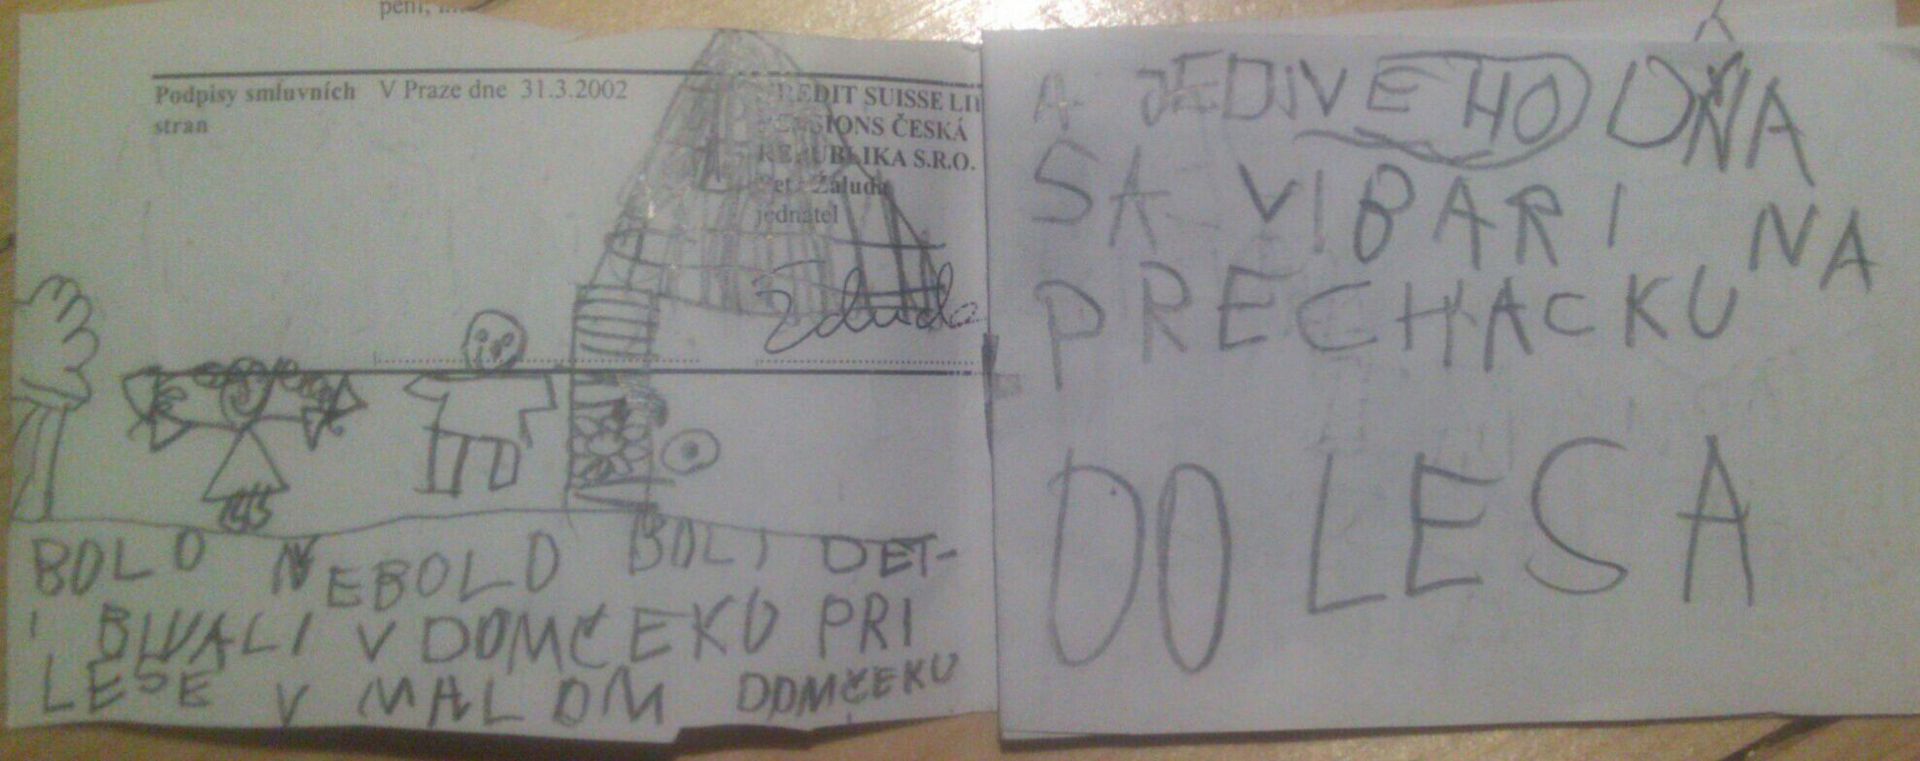 Podpisy smluvních V Praze dne 31.3.2002
stran
CREDIT SUISSE LI
PENSIONS ČESKÁ
REPUBLIKA S.R.O.
Petr Žaluda
jednatel
BOLO NEBOLO BOLI DET-
I BIVALI V DOMČEKU PRI
LESE V MALOM DOMČEKU
A JEDNEHO DŇA
SA VIBARI NA
PRECHACKU
DO LESA